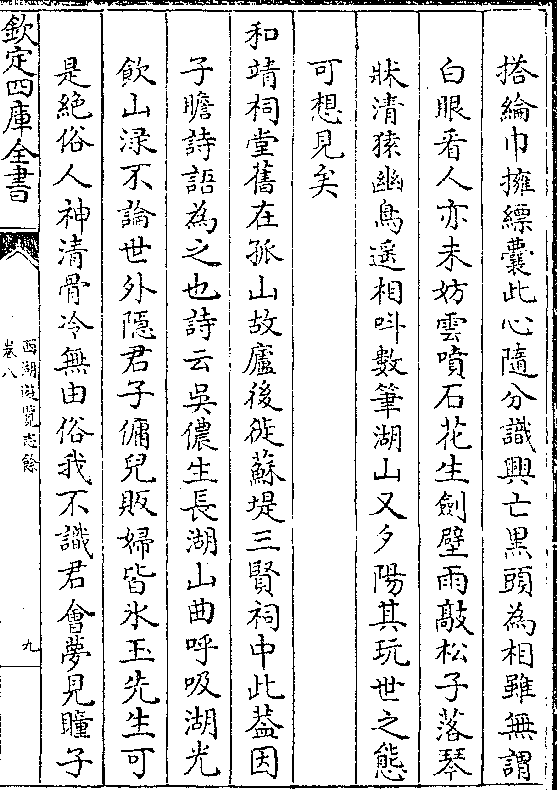 搭綸巾擁縹囊此心隨分識興亡黒頭為相雖無謂
白眼看人亦未妨雲噴石花生劍壁雨敲松子落琴
牀清猿幽鳥遥相呌數筆湖山又夕陽其玩世之態
可想見矣
和靖祠堂舊在孤山故廬後徙蘇堤三賢祠中此葢因
子瞻詩語為之也詩云吳儂生長湖山曲呼吸湖光
飲山渌不論世外隱君子傭兒販婦皆氷玉先生可
是絶俗人神清骨冷無由俗我不識君曾夢見瞳子
欽定四庫全書
西湖遊覽志餘
卷八
九